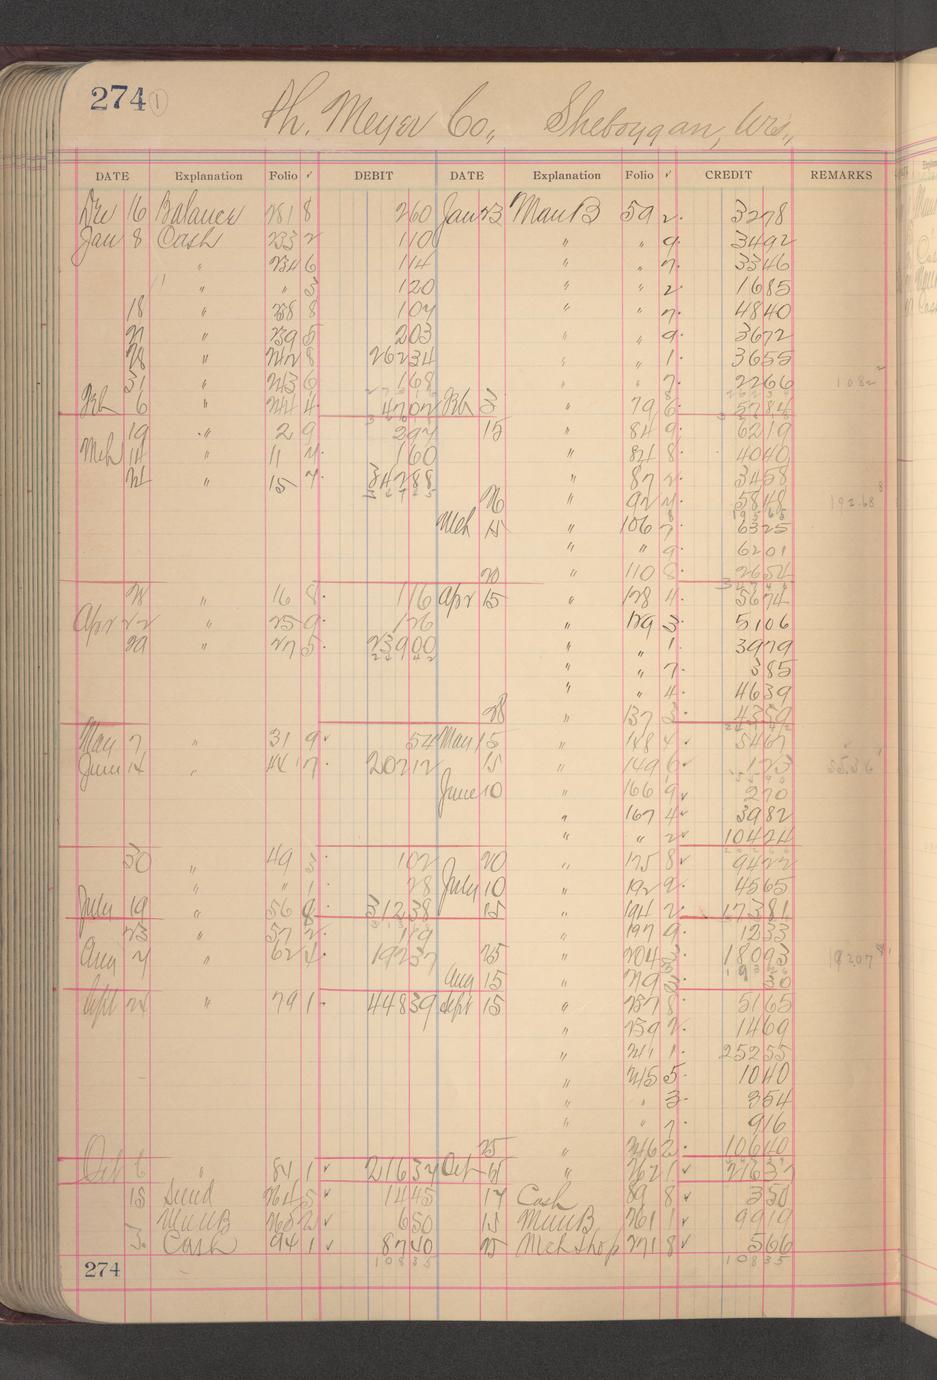 274 1
Ph. Meyer Co., Sheboygan, Wis.,
DATE Explanation Folio ✓ DEBIT DATE Explanation Folio ✓ CREDIT REMARKS
Dec 16 Balance 281 8 260 Jan 23 ManB 59 2. 3278
Jan 8 Cash 233 2 110 " " 9. 3492
" 234 6 114 " " 7. 3346
" " 3 120 " " 2. 1685
18 " 238 8 104 " " 7. 4840
21 " 239 5 203 " " 9. 3672
28 " 242 8 26234 " " 1. 3655
31 " 243 6 168 " " 7. 2266
Feb 6 " 244 4. 4702 Feb 5 " 79 6. 5784
19 " 2 9 294 15 " 84 9. 6219
Mch 14 " 11 160 " 84 8. 4040
24 " 15 7. 34288 " 87 2. 3458
26 " 92 5848 192.68
Mch 15 " 106 7. 6325
" " 9. 6201
20 " 110 8. 2654
28 " 16 8. 116 Apr 15 " 128 5674
Apr 22 " 25 9. 126 " 129 3. 5106
29 " 27 5. 23900 " " 1. 3979
" " 7. 385
" " 4. 4639
28 " 137 3. 4359
May 7 " 31 9 ✓ 54 May 15 " 148 4 ✓ 5467
June 14 " 44 7. 20212 15 " 149 6 ✓ 123
June 10 " 166 9 ✓ 270
" 167 4 ✓ 3982
" " 2 ✓ 10424
30 " 49 3. 102 20 " 175 8 ✓ 9422
" " 1. 28 July 10 " 192 9. 4565
July 19 " 56 8. 31238 15 " 194 2. 17381
23 " 57 2. 119 " 197 9. 1233
Aug 7 " 62 4. 19237 25 " 204 3. 18093 19207
Aug 15 " 219 3. 30
Sept 24 " 79 1. 44839 Sept 15 " 237 8. 5165
" 239 2. 1469
" 241 1. 25255
" 245 5. 1040
" " 3. 354
" " 7. 916
25 " 246 2. 10640
Oct 6 " 84 1 ✓ 21637 Oct 15 " 262 1 ✓ 21637
15 Sund 264 5 ✓ 1445 17 Cash 89 8 ✓ 350
ManB 265 2 ✓ 650 15 ManB 261 1 ✓ 9919
Cash 94 1 ✓ 8740 25 Mch Shop 271 8 ✓ 566
10835 10835
274